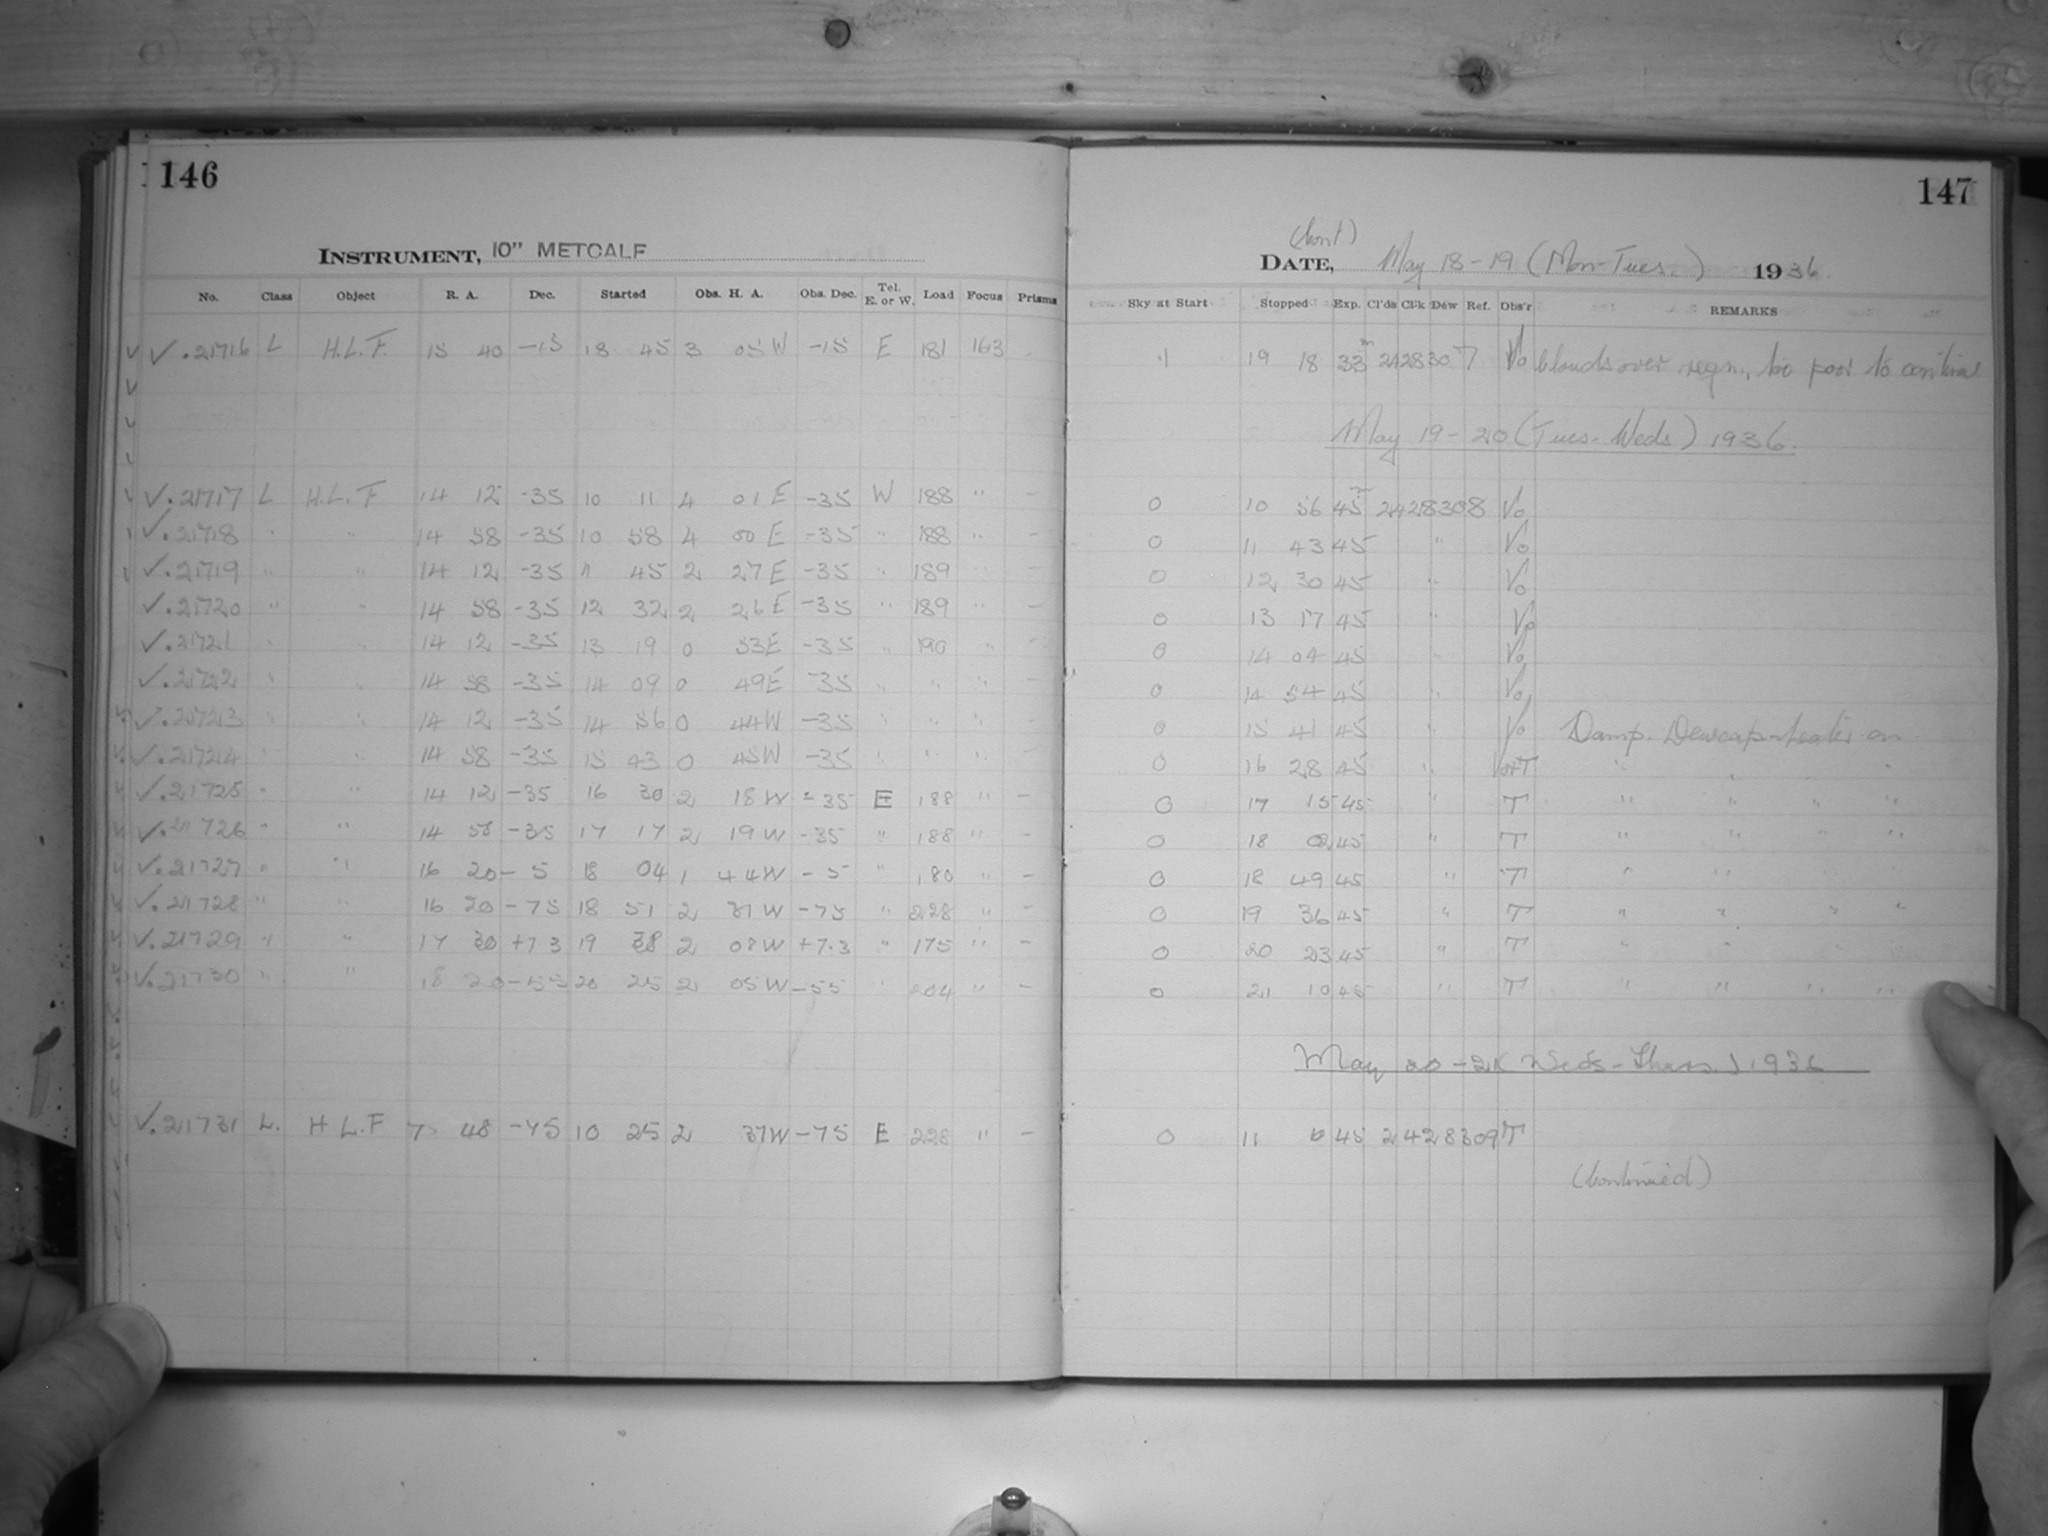 146
INSTRUMENT, 10" METCALF
No. Class Object R. A. Dec. Started Obs. H. A. Obs. Dec. Tel. E. or W. Load Focus Prisms
✓ ✓ .21716 L H.L.F. 15 40 -15 18 45 3 05 W -15 E 181 163
✓ .21717 L H.L.F 14 12 -35 10 11 4 01 E -35 W 188 " -
✓ .21718 " " 14 58 -35 10 58 4 00 E -35 " 188 " -
✓ .21719 " " 14 12 -35 11 45 2 27 E -35 " 189 " -
✓ .21720 " " 14 58 -35 12 32 2 26 E -35 " 189 " -
✓ .21721 " " 14 12 -35 13 19 0 53 E -35 " 190 " -
✓ .21722 " " 14 58 -35 14 09 0 49 E -35 " " " -
✓ .21723 " " 14 12 -35 14 56 0 44 W -35 " " " -
✓ .21724 " " 14 58 -35 15 43 0 45 W -35 " " " -
✓ .21725 " " 14 12 -35 16 30 2 18 W -35 E 188 " -
✓ .21726 " " 14 58 -35 17 17 2 19 W -35 " 188 " -
✓ .21727 " " 16 20 -5 18 04 1 44 W -5 " 180 " -
✓ .21728 " " 16 20 -75 18 51 2 31 W -75 " 228 " -
✓ .21729 " " 17 30 +7.3 19 38 2 08 W +7.3 " 175 " -
✓ .21730 " " 18 20 -55 20 25 2 05 W -55 " 204 " -
✓ .21731 L. H L.F 7 48 -75 10 25 2 37 W -75 E 228 " -
147
(Cont)
DATE, May 18-19 (Mon-Tues.) 1936
Sky at Start Stopped Exp. Cl'ds Cl'k Dew Ref. Obs'r REMARKS
19 18 33m 2428307 Vo Clouds over regn., too poor to continue
May 19-20 (Tues-Weds) 1936.
0 10 56 45m 2428308 Vo
0 11 43 45 " Vo
0 12 30 45 " Vo
0 13 17 45 " Vo
0 14 04 45 " Vo
0 14 54 45 " Vo
0 15 41 45 " Vo Damp. Dewcap-heater on
0 16 28 45 " Vo+T " " "
0 17 15 45 " T " " " "
0 18 02 45 " T " " " "
0 18 49 45 " T " "
0 19 36 45 " T " " " "
0 20 23 45 " T " "
0 21 10 45 " T " " " "
May 20-21 (Weds-Thurs.) 1936
0 11 45 2428309 T
(Continued)